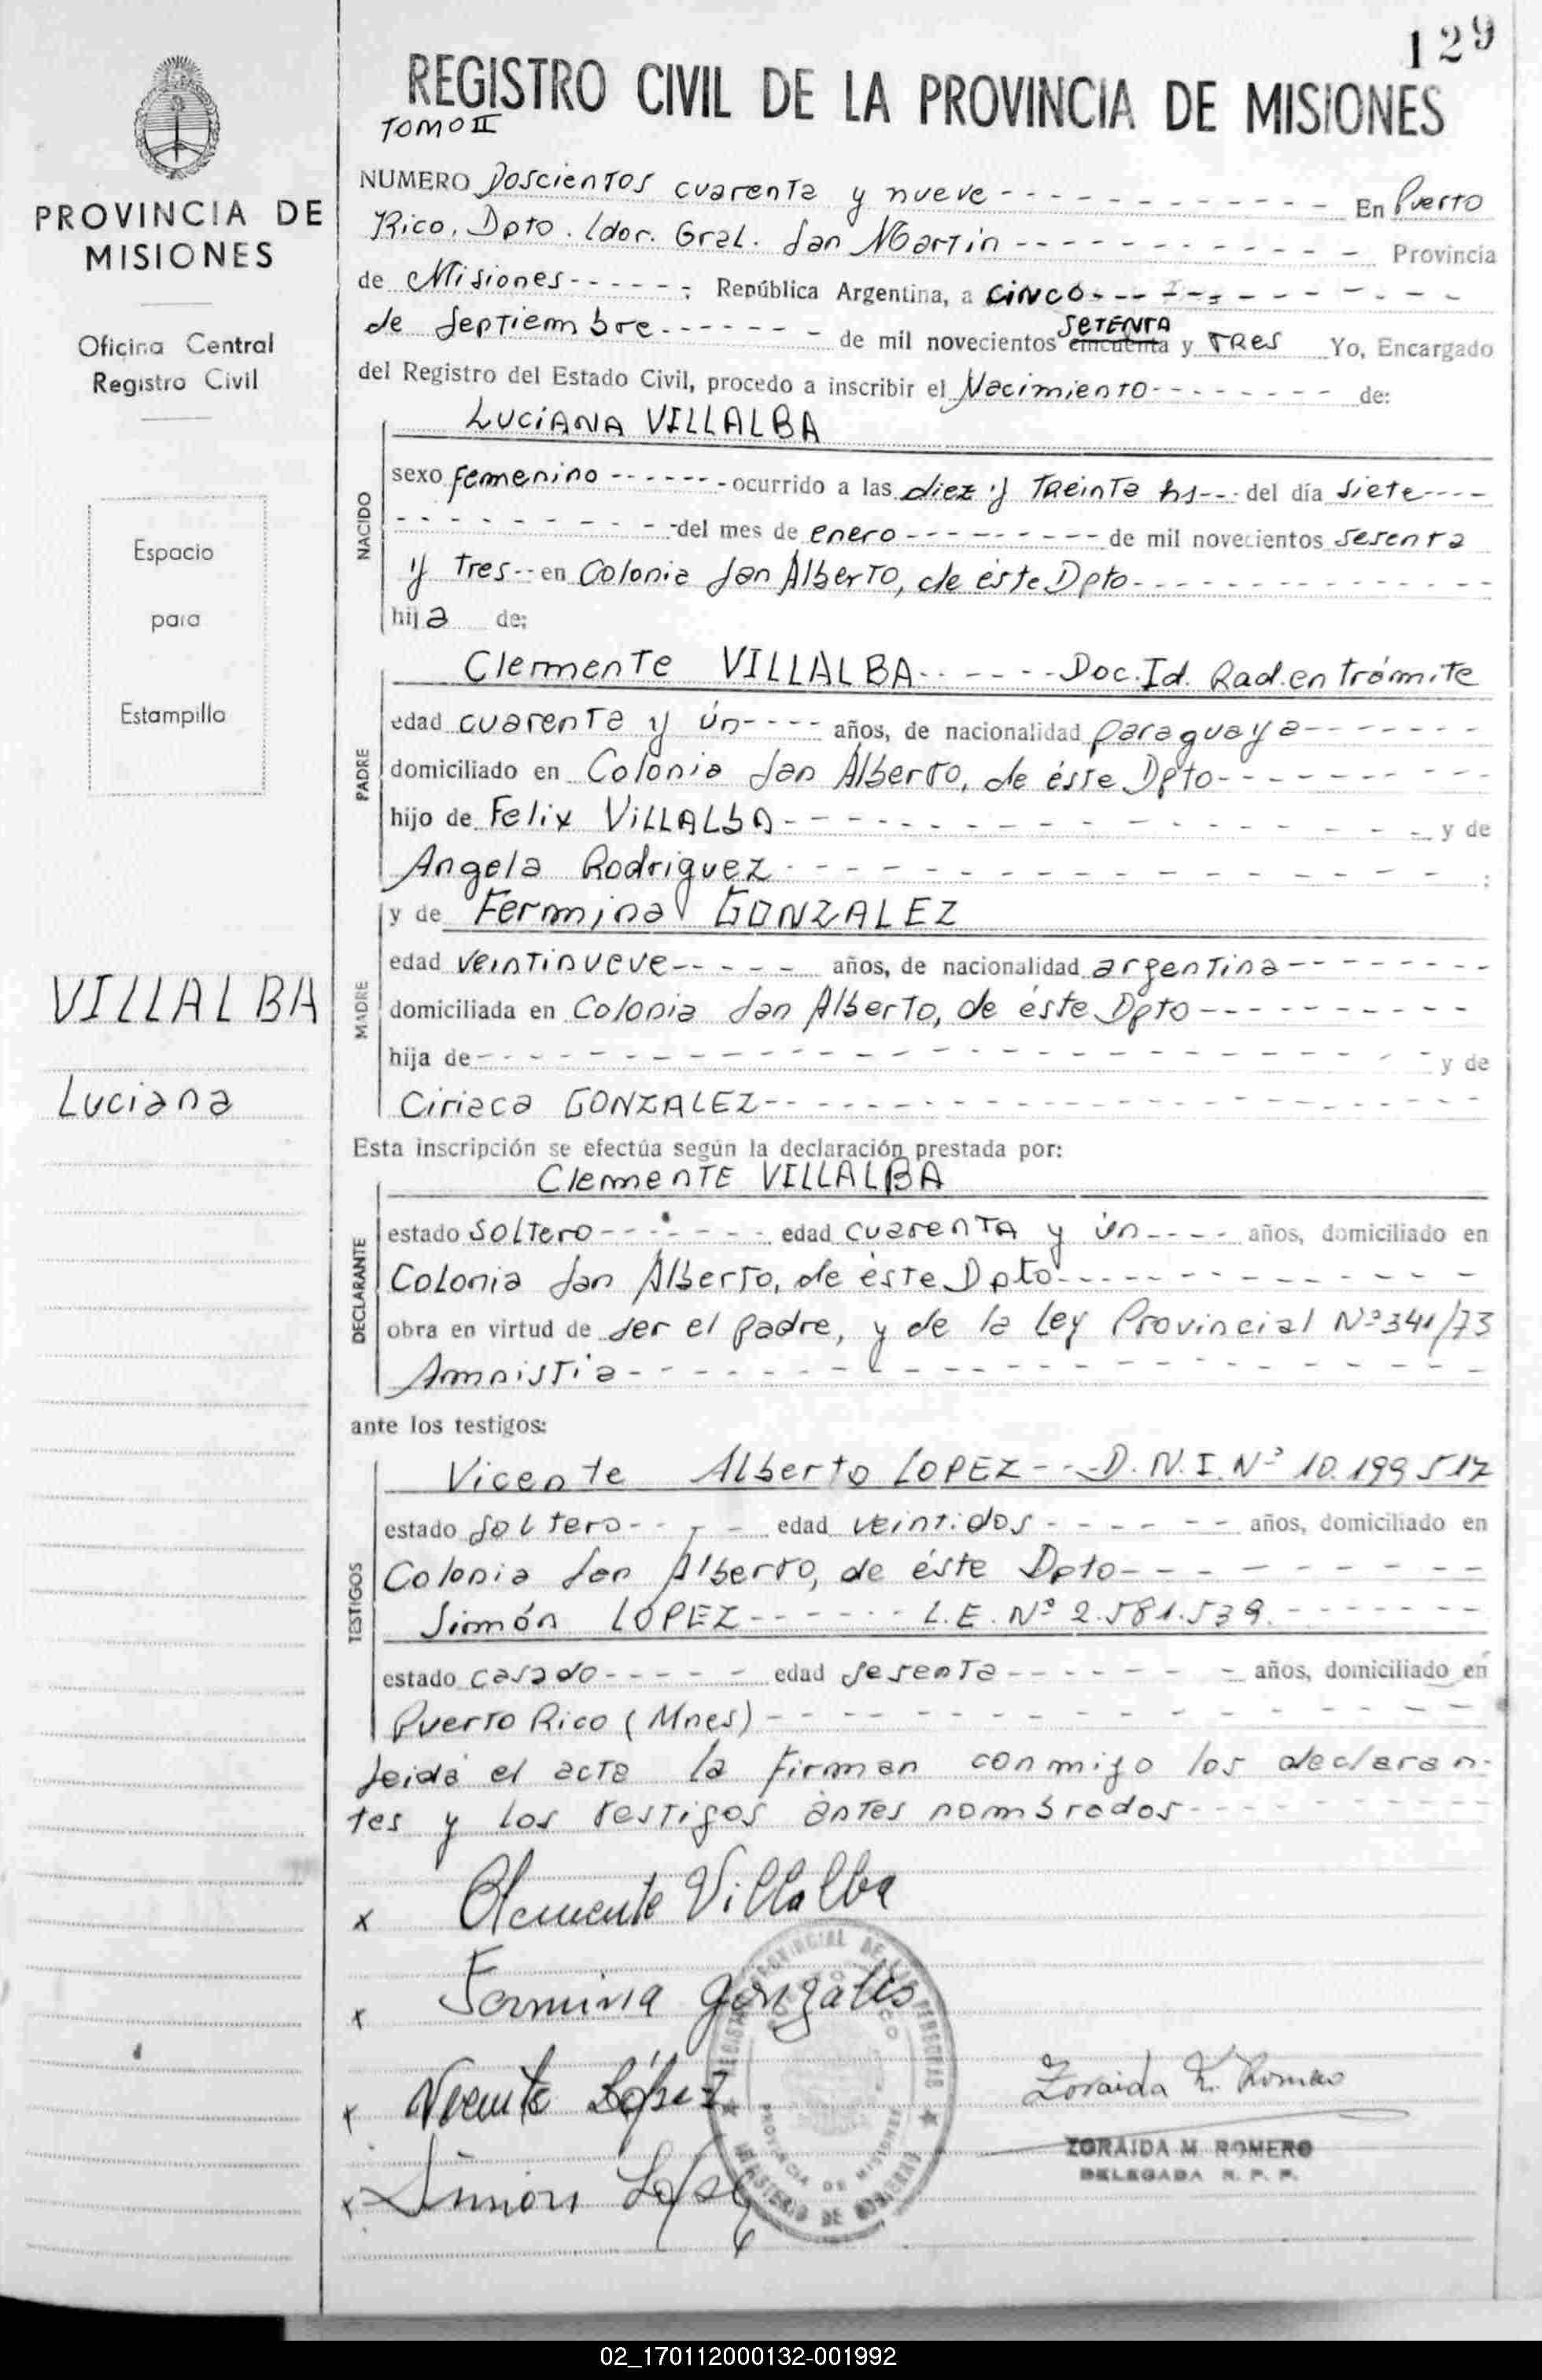 129
REGISTRO CIVIL DE LA PROVINCIA DE MISIONES
TOMO II
PROVINCIA DE
MISIONES
Oficina Central
Registro Civil
Espacio
para
Estampilla
VILLALBA
Luciana
NUMERO Doscientos cuarenta y nueve - - - - - - - - - - - - En Puerto
Rico, Dpto. Ldor. Gral. San Martin - - - - - - - - - - - - Provincia
de Misiones - - - - - - República Argentina, a CINCO - - - - - - - - - - -
de Septiembre - - - - - - - de mil novecientos cincuenta SETENTA y TRES Yo, Encargado
del Registro del Estado Civil, procedo a inscribir el Nacimiento - - - - - - - - de:
LUCIANA VILLALBA
NACIDO
sexo femenino - - - - - - - ocurrido a las diez y Treinta hs - - - del día siete - - - -
- - - - - - - - - - del mes de enero - - - - - - - - - de mil novecientos sesenta
y Tres - - en Colonia San Alberto, de éste Dpto - - - - - - - - - - - - - -
hija de:
PADRE
Clemente VILLALBA - - - - - - Doc. Id. Rad. en trámite
edad cuarenta y ún - - - - años, de nacionalidad paraguaya - - - - - - -
domiciliado en Colonia San Alberto, de éste Dpto - - - - - - - - -
hijo de Felix VILLALbA - - - - - - - - - - - - - - - - y de
Angela Rodriguez - - - - - - - - - - - - - - - - ;
MADRE
y de Fermina GONZALEZ
edad veintinueve - - - - - - años, de nacionalidad argentina - - - - - - - -
domiciliada en Colonia San Alberto, de éste Dpto - - - - - - - - - -
hija de - - - - - - - - - - - - - - - - - - - - - - - - y de
Ciriaca GONZALEZ - - - - - - - - - - - - - - - - - -
Esta inscripción se efectúa según la declaración prestada por:
Clemente VILLALBA
DECLARANTE
estado SOLTero - - - - - - - edad cuarenTA y ún - - - - años, domiciliado en
Colonia San Alberto, de éste Dpto - - - - - - - - - - - - -
obra en virtud de ser el padre, y de la Ley Provincial Nº 341/73
Amnistia - - - - - - - - - - - - - - - - - - -
ante los testigos:
TESTIGOS
Vicente Alberto LOPEZ - - - D. N. I. Nº 10.199.517
estado Soltero - - - - edad veintidos - - - - - - - años, domiciliado en
Colonia San Alberto, de éste Dpto - - - - - - - - -
Simón LOPEZ - - - - - - - L. E. Nº 2.581.539. - - - - - -
estado casado - - - - - edad sesenta - - - - - - - años, domiciliado en
Puerto Rico (Mnes) - - - - - - - - - - - - - - - -
Leida el acta la firman conmigo los declaran-
tes y los testigos àntes nombrados - - - - - - - - -
x Clemente Villalba
x Fermina Gonzales
x Vicente López
x Simon Lopez
REGISTRO PROVINCIAL DE LAS PERSONAS
PROVINCIA DE MISIONES
MINISTERIO DE GOBIERNO
Zoraida M. Romero
ZORAIDA M. ROMERO
DELEGADA R. P. P.
02_170112000132-001992